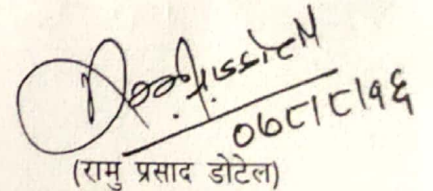 ०७८।८।१६
(रामु प्रसाद डोटेल)